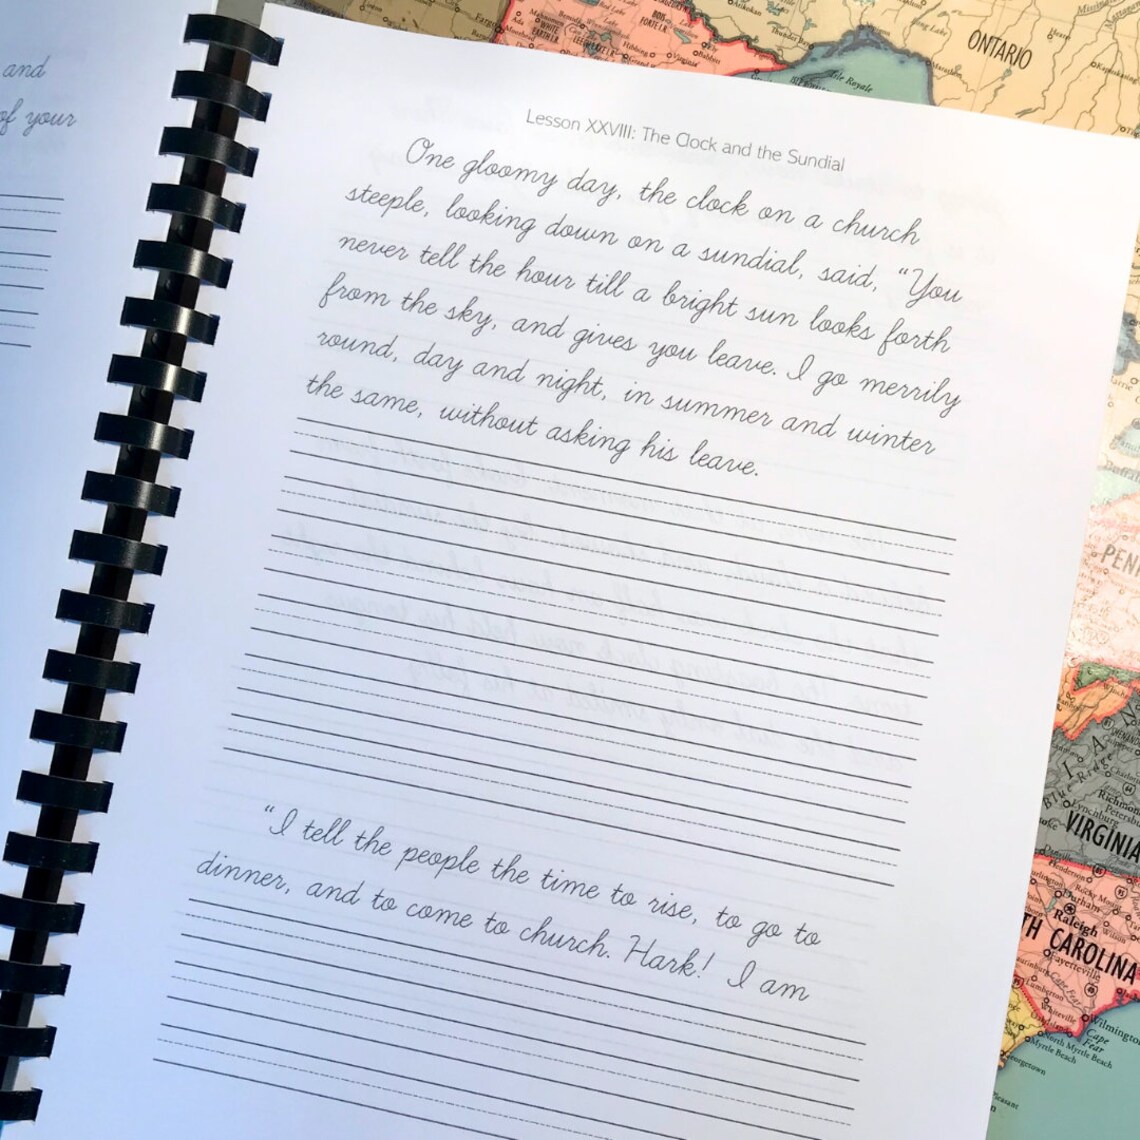 and
of your
Lesson XXVIII: The Clock and the Sundial
One gloomy day, the clock on a church
steeple, looking down on a sundial, said, "You
never tell the hour till a bright sun looks forth
from the sky, and gives you leave. I go merrily
round, day and night, in summer and winter
the same, without asking his leave.
"I tell the people the time to rise, to go to
dinner, and to come to church. Hark! I am
ONTARIO
Isle Royale
WHITE
EARTH I.R.
LEECH LAKE I.R.
Hibbing
Virginia
Babbitt
Thunder Bay
PENN
Blue Ridge
Lynchburg
Richmond
VIRGINIA
Danville
Henderson
Rocky Mount
Durham
Raleigh
Wilson
TH CAROLINA
Fayetteville
Cape Fear
Lumberton
Whiteville
Wilmington
Cape
Fear
North Myrtle Beach
Myrtle Beach
Georgetown